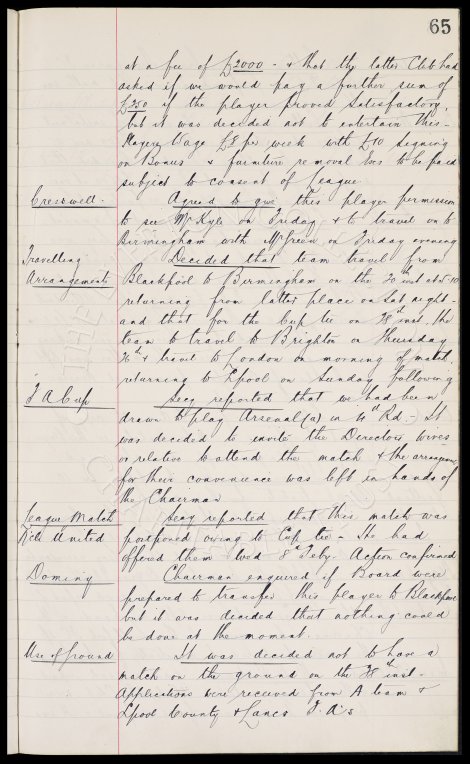 65
at a fee of £2000 - & that the latter Club had
asked if we would pay a further sum of
£250 if the player proved satisfactory,
but it was decided not to entertain this -
Players Wage £8 per week with £10 signing
on Bonus & furniture removal to be paid
subject to consent of League
Cresswell - Agreed to give this player permission
to see Mr Kyle on Friday & to travel on to
Birmingham with Mr Green on Friday evening
Travelling Decided that team travel from
Arrangements Blackpool to Birmingham on the 20th inst at 5-10
returning from latter place on Sat night -
and that for the Cup tie on 28th inst. the
team to travel to Brighton on Thursday
26th & travel to London on morning of match
returning to Lpool on Sunday following
F A Cup Secy reported that we had been
drawn to play Arsenal (a) in 4th Rd. - It
was decided to invite the Directors wives
or relative to attend the match & the arrangements
for their convenience was left in hands of
the Chairman
League Match Secy reported that this match was
N'cle United postponed owing to Cup tie - He had
offered them Wed 8th Feby. Action confirmed
Dominy Chairman enquired if Board were
prepared to transfer this player to Blackpool
but it was decided that nothing could
be done at the moment.
Use of Ground It was decided not to have a
match on the ground on the 28th inst -
Applications were received from A team &
Lpool County & Lancs F. A's